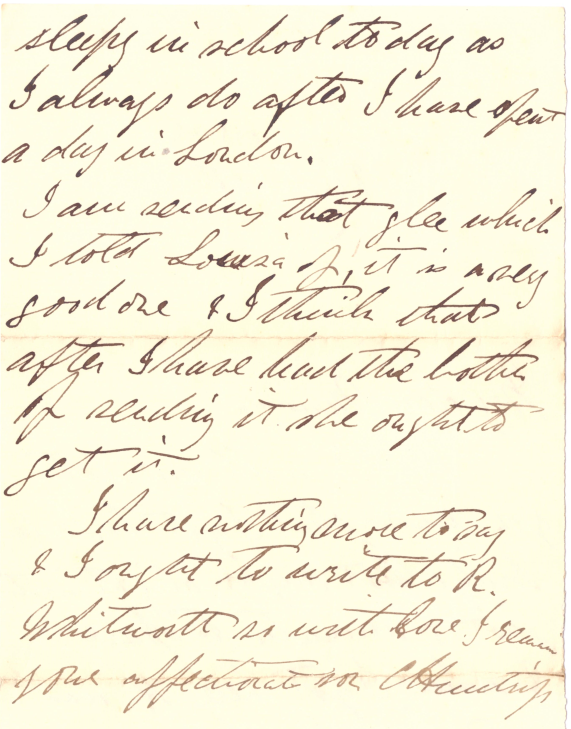 sleepy in school today as
I always do after I have spent
a day in London.
I am sending that glee which
I told Louisa of, it is a very
good one & I think that
after I have had the bother
of sending it she ought to
get it.
I have nothing more to say
& I ought to write to R.
Whitworth so with love I remain
your affectionate son